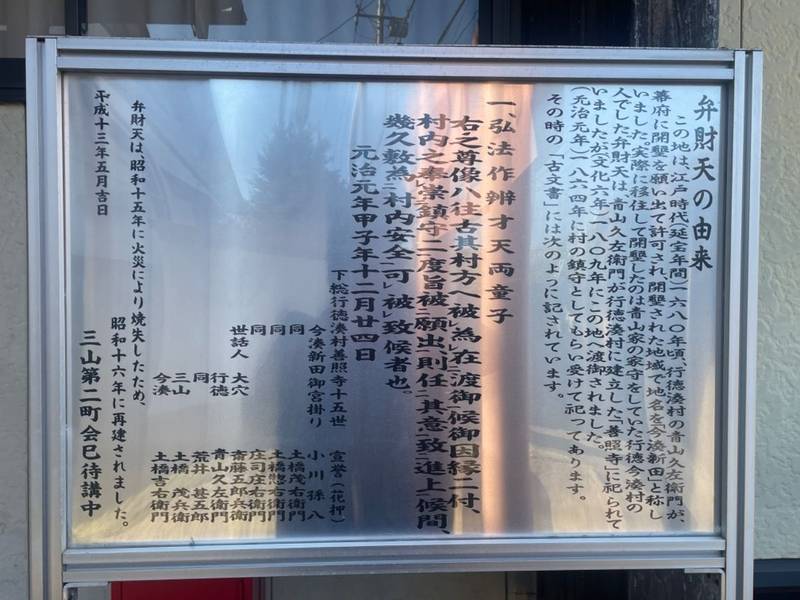 弁財天の由来
この地は、江戸時代延宝年間(一六八〇年頃、行徳湊村の青山久左衛門が、
幕府に開墾を願い出て許可され、開墾された地域で地名を今湊新田と称し
いました。実際に移住して開墾したのは青山家の家守をしていた行徳今湊村の
人でした。弁財天は、青山久左衛門が行徳湊村に建立した「善照寺」に祀られて
いましたが文化六年(一八〇九年にこの地へ渡御されました。
(元治元年(一八六四年に村の鎮守としてもらい受けて祀ってあります。
その時の「古文書」には次のように記されています。
一、弘法作辨才天両童子
右之尊像八往古其村方へ被レ為レ在二渡御一候御因縁二付、
村内之奉崇鎮守二度旨被二願出一則任二其意一致二進上一候間、
幾久敷為二村内安全一可レ被レ致候者也。
元治元年甲子年十二月廿四日
下総行徳湊村善照寺十五世 宣誉(花押)
今湊新田御宮掛り 小川孫八
同 土橋茂右衛門
同 土橋惣右衛門
同 庄司庄右衛門
世話人 大穴 斎藤五郎兵衛
行徳 青山久左衛門
同 荒井甚五郎
三山 土橋茂兵衛
今湊 土橋吉右衛門
弁財天は、昭和十五年に火災により焼失したため、
昭和十六年に再建されました。
平成十三年五月吉日
三山第二町会巳待講中